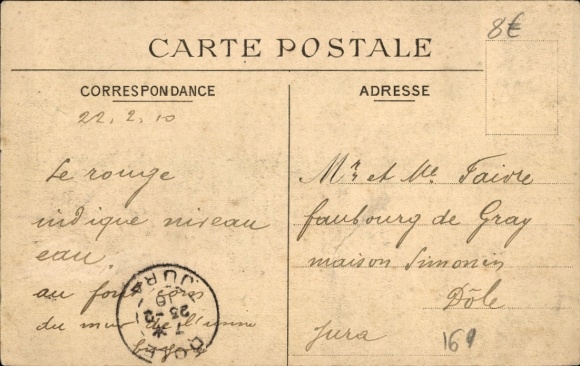 8€
CARTE POSTALE
CORRESPONDANCE
22.2.10
Le rouge
indique niveau
eau.
au fond
du mur de l'usine
ADRESSE
Mr et Me Faivre
faubourg de Gray
maison Simonin
Dôle
Jura
169
DOLE
JURA
23-2
10